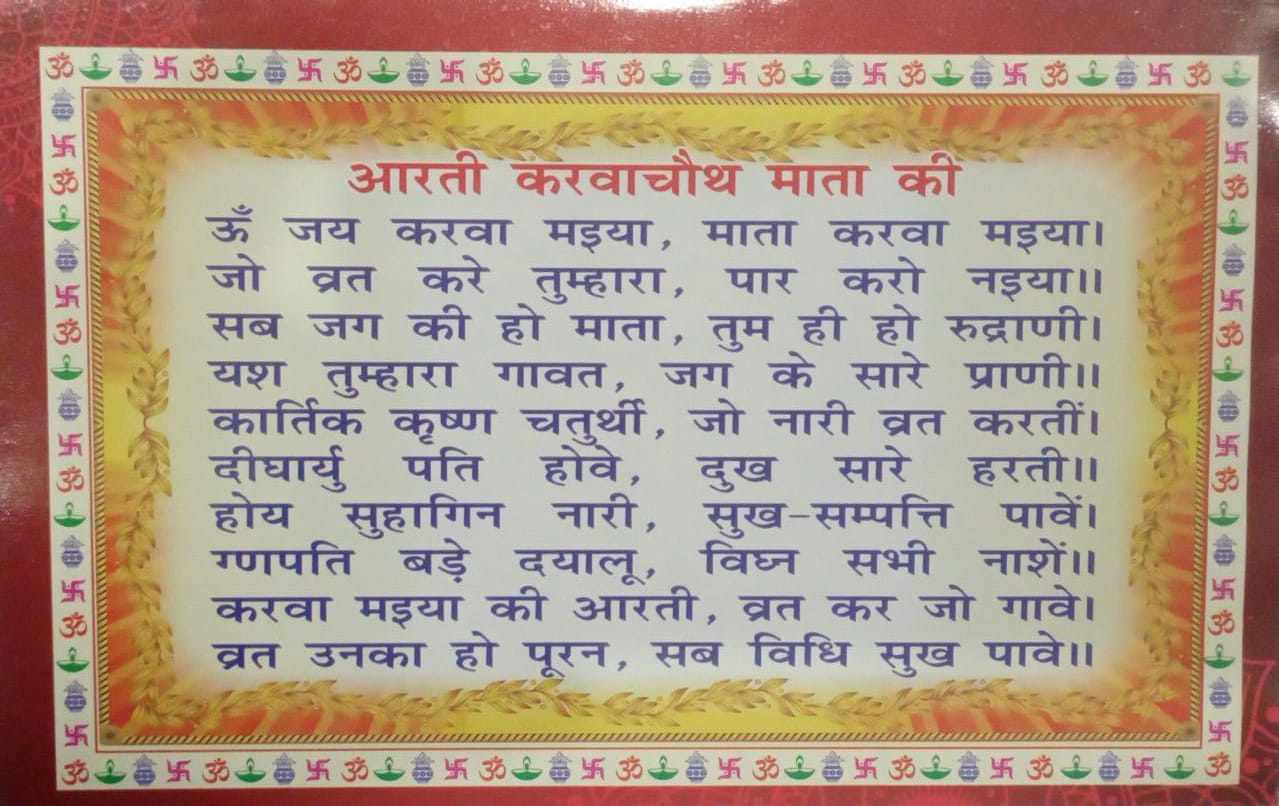 आरती करवाचौथ माता की
ऊँ जय करवा मइया, माता करवा मइया।
जो व्रत करे तुम्हारा, पार करो नइया॥
सब जग की हो माता, तुम ही हो रुद्राणी।
यश तुम्हारा गावत, जग के सारे प्राणी॥
कार्तिक कृष्ण चतुर्थी, जो नारी व्रत करतीं।
दीघार्यु पति होवे, दुख सारे हरती॥
होय सुहागिन नारी, सुख-सम्पत्ति पावें।
ग्णपति बड़े दयालू, विघ्न सभी नाशें॥
करवा मइया की आरती, व्रत कर जो गावे।
व्रत उनका हो पूरन, सब विधि सुख पावे॥